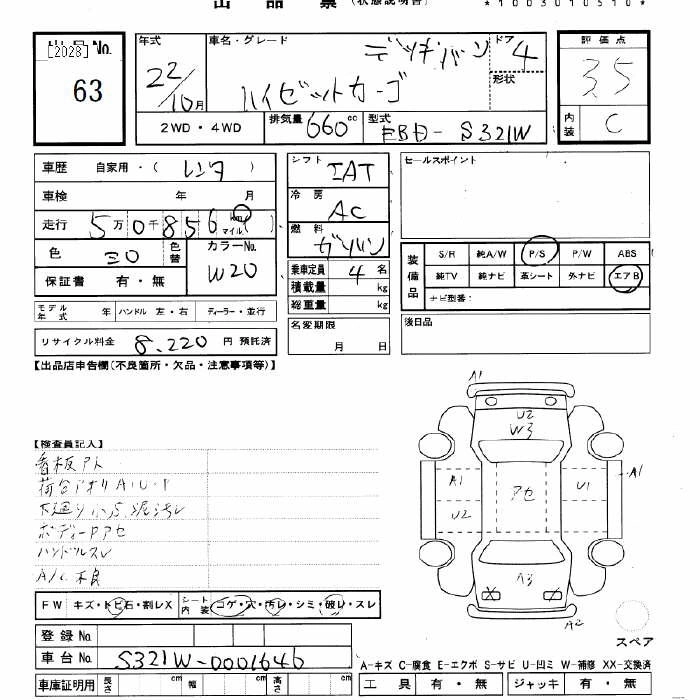 出品票 (状態説明書)
*1003010510*
出品No. [2028]
63
年式
22/10月
車名・グレード
デッキバン
ハイゼットカーゴ
ドア 4
形状
評価点
3.5
内装 C
2WD・4WD
排気量 660cc
型式 EBD-S321W
車歴 自家用・(レンタ)
車検 年 月
走行 5万0千856 km マイル
色 シロ 色替
カラーNo. W20
保証書 有・無
シフト IAT
冷房 AC
燃料 ガソリン
乗車定員 4名
積載量 kg
総重量 kg
名変期限 月 日
セールスポイント
装備品
S/R 純A/W P/S P/W ABS
純TV 純ナビ 革シート 外ナビ エアB
ナビ型番:
後日品
モデル年式 年 ハンドル 左・右 ディーラー・並行
リサイクル料金 8,220 円 預託済
【出品店申告欄(不良箇所・欠品・注意事項等)】
【検査員記入】
看板アト
荷台アオリA・U・P
下廻り小S 泥汚レ
ボディーPアセ
ハンドルスレ
A/C不良
A1
U2
W3
A1
A1
U1
アセ
U2
A3
X X
A2
スペア
FW キズ・トビ石・割レX
シート内装 コゲ・穴・汚レ・シミ・破レ・スレ
登録No.
車台No. S321W-0001646
車庫証明用 長さ cm 幅 cm 高さ cm
A-キズ C-腐食 E-エクボ S-サビ U-凹ミ W-補修 XX-交換済
工具 有・無 ジャッキ 有・無